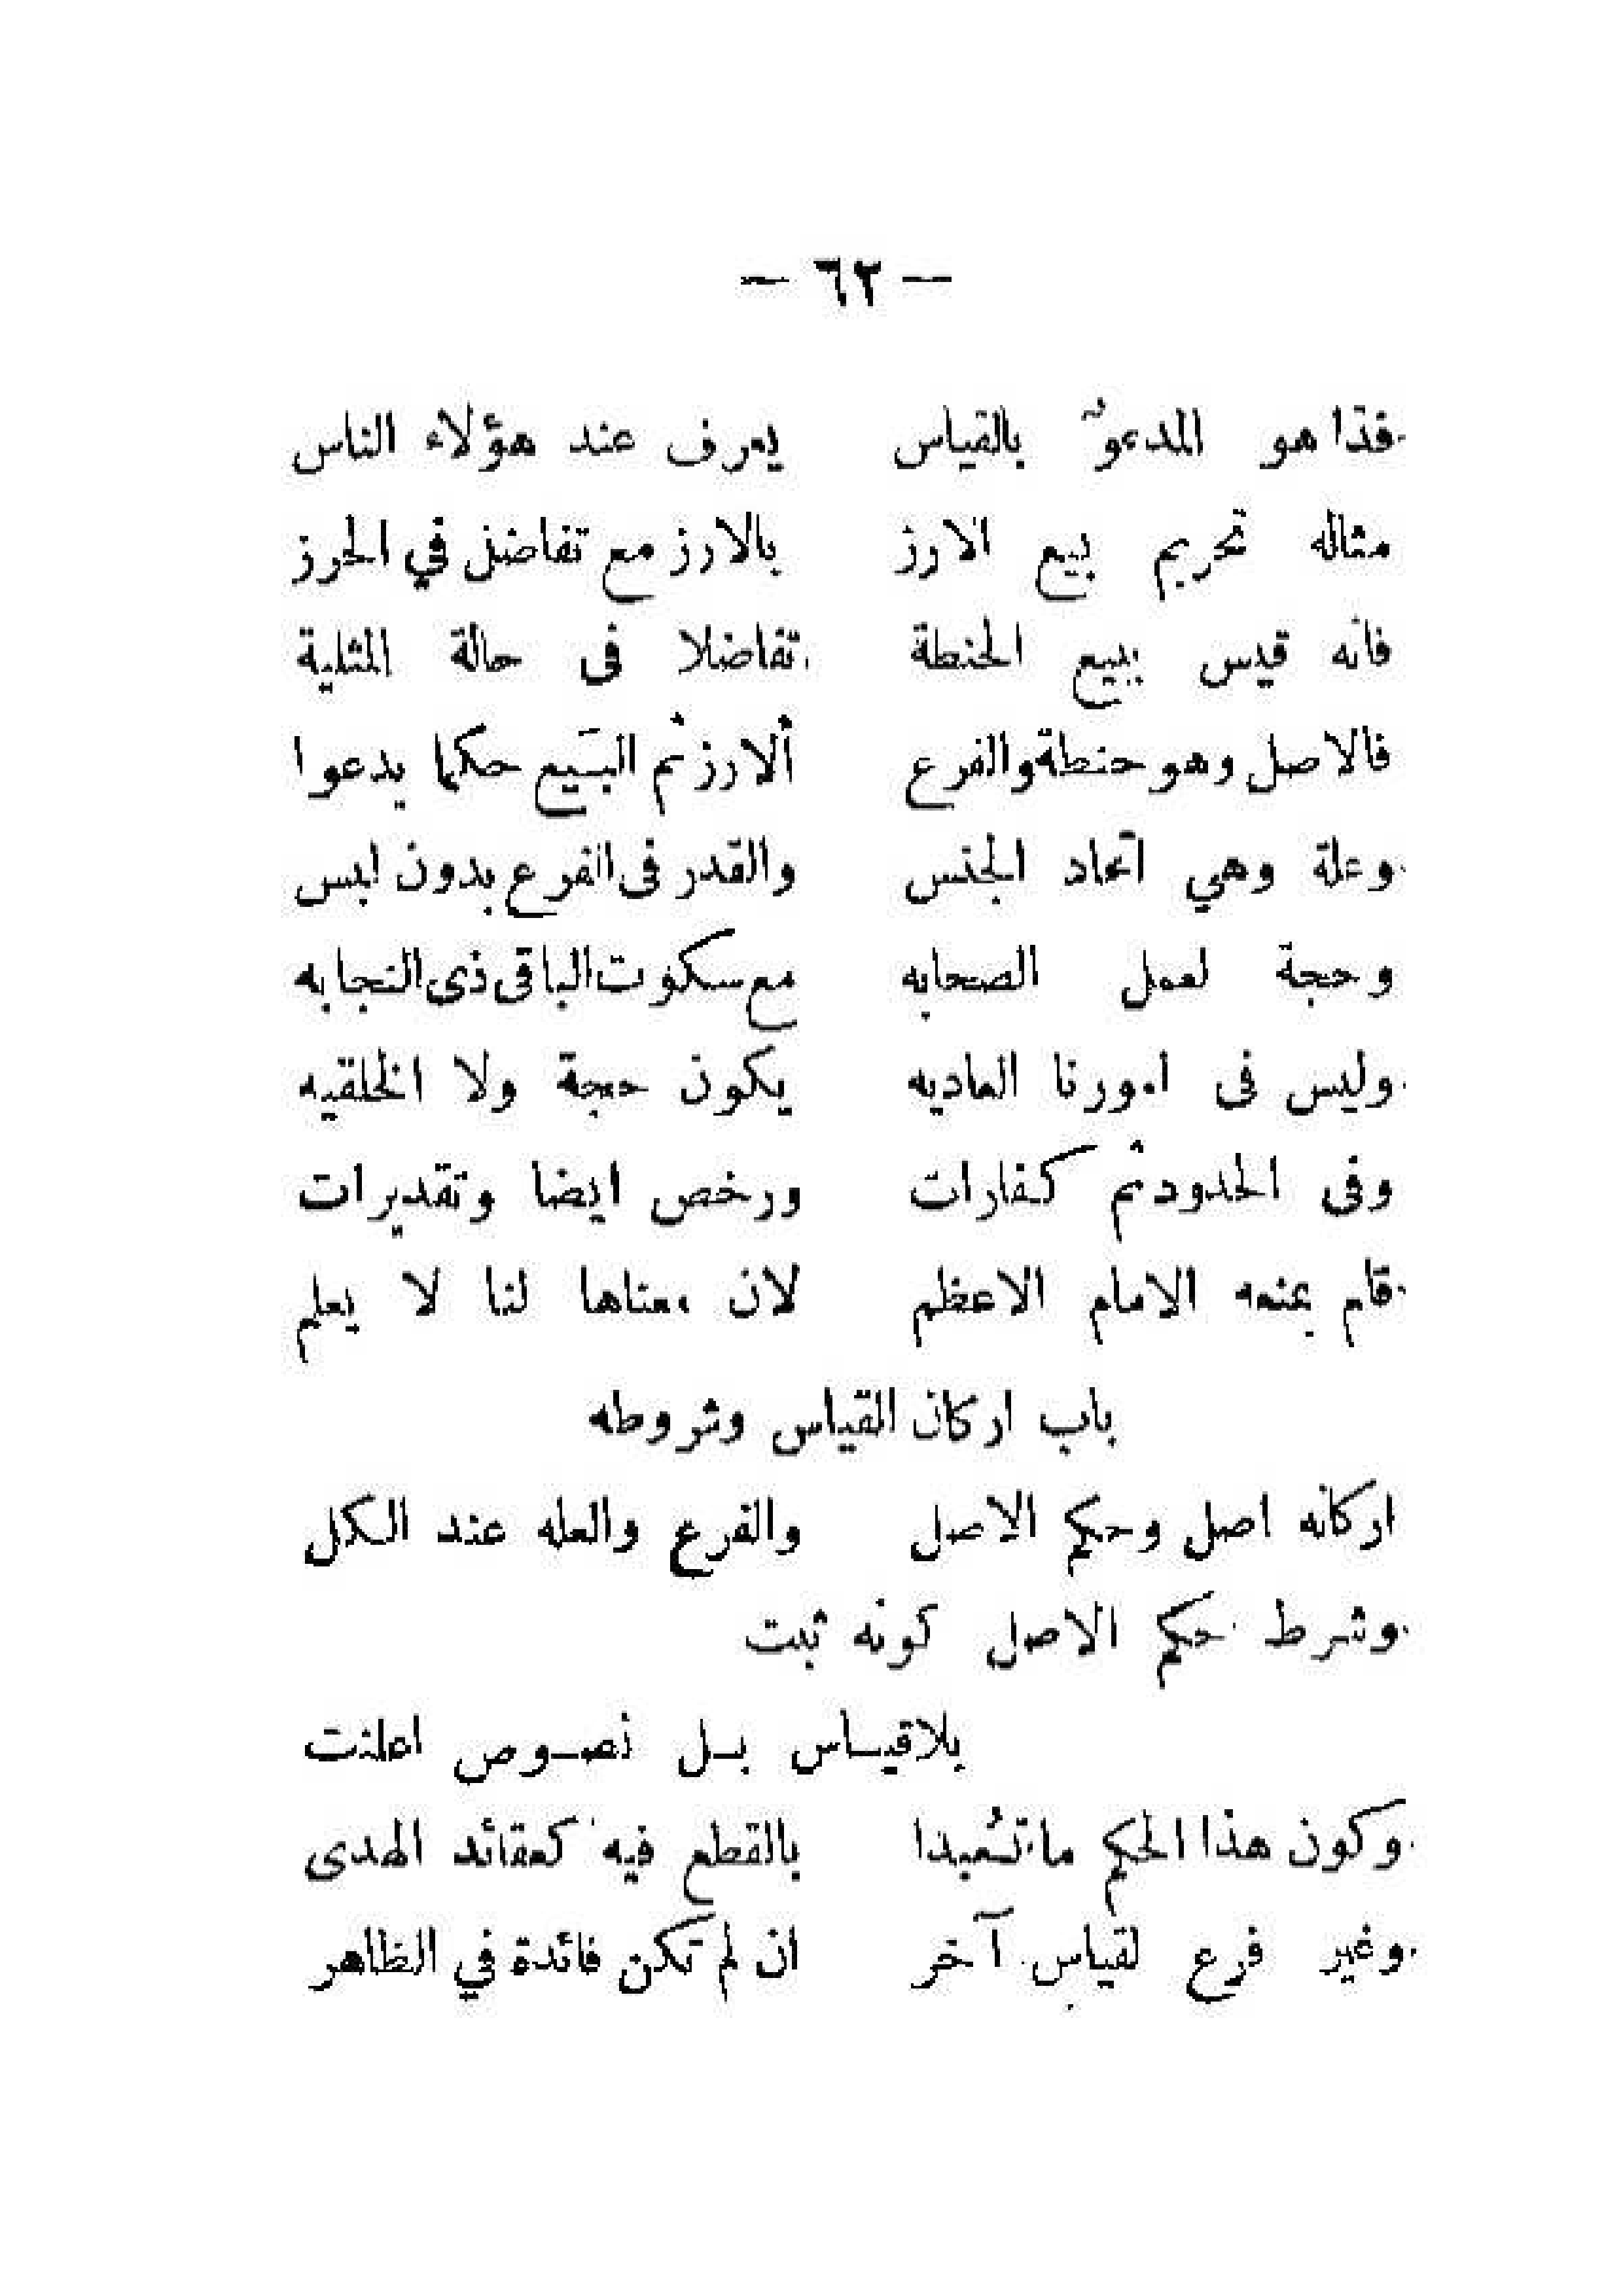 — ٦٢ —
فذا هو المدعوّ بالقياس يعرف عند هؤلاء الناس
مثاله تحريم بيع الارز بالارز مع تفاضل في الحرز
فانه قيس ببيع الحنطة تفاضلا فى حالة المثلية
فالاصل وهو حنطة والفرع ألارز ثم البيع حكما يدعوا
وعلة وهي اتحاد الجنس والقدر فى الفرع بدون لبس
وحجة لعمل الصحابه مع سكوت الباقى ذى النجابه
وليس فى امورنا العاديه يكون حجة ولا الخلقيه
وفى الحدود ثم كفارات ورخص ايضا وتقديرات
قام بمنعه الامام الاعظم لان معناها لنا لا يعلم
باب اركان القياس وشروطه
اركانه اصل وحكم الاصل والفرع والعله عند الكل
وشرط حكم الاصل كونه ثبت
بلاقيـاس بـل نصـوص اعلنت
وكون هذا الحكم ما تُعبدا بالقطع فيه كعقائد الهدى
وغير فرع لقياس آخر ان لم تكن فائدة في الظاهر